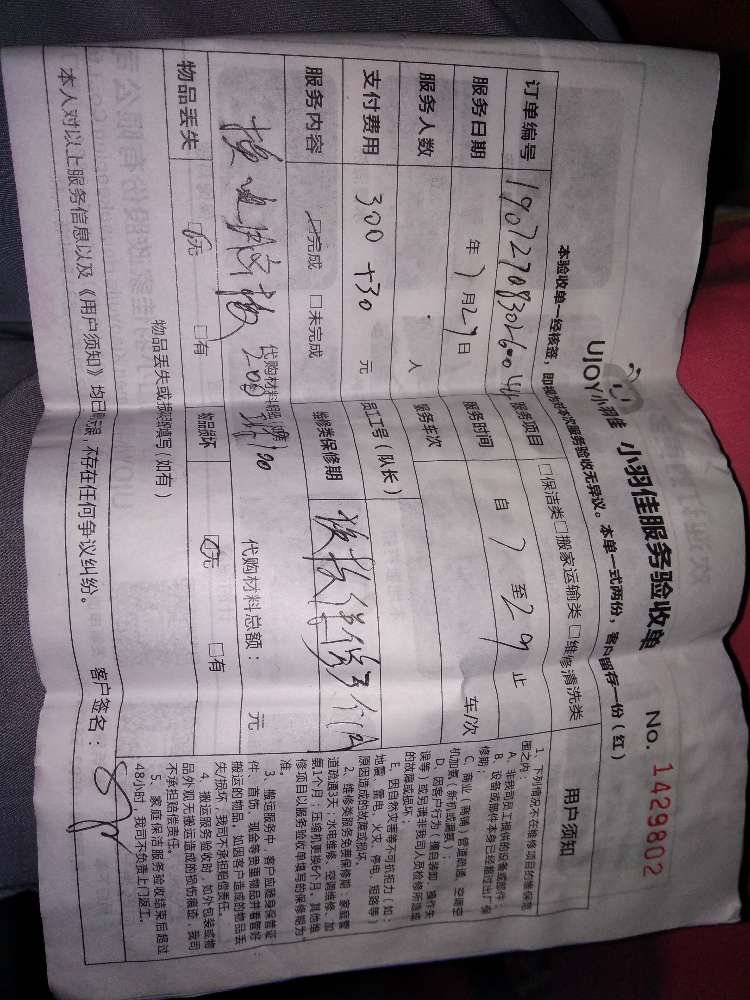 UJOY小羽佳 小羽佳服务验收单 No. 1429802
本验收单一经核签，即视为对本次服务验收无异议。本单一式两份，客户留存一份（红）
订单编号 服务项目 □保洁类□搬家运输类 □维修清洗类
服务日期 年 7月29日 服务时间 自 7 至29 止
服务人数 人 服务车次 车/次
支付费用 300+30 元 员工工号（队长）
服务内容 ☑完成 □未完成 维修类保修期
代购材料明细（牌） 代购材料总额： 元
物品丢失 ☑无 □有 物品损坏 ☑无 □有
物品丢失或损坏填写（如有）
本人对以上服务信息以及《用户须知》均已阅读，不存在任何争议纠纷。 客户签名：
用户须知
1、下列情况不在维修项目的维保范
围之内：
A、非我司员工提供的设备或部件；
B、设备或部件本身已经超过出厂保
修期；
C、商业（商铺）管道疏通、空调空
机加氨（新机或需要）；
D、因客户行为（擅自装卸、操作失
误等）或另请非我司人员检修所造成
的故障或损坏；
E、因自然灾害等不可抗拒力（如：
地震、雷电、火灾、停电、短路等）
原因造成的故障或损坏。
2、维修类服务免费保修期：家庭管
道疏通3天；水电维修、空调维修、加
氨1个月；压缩机更换6个月。其他维
修项目以服务验收单填写的保修期为
准。
3、搬运服务中，客户应随身保管证
件、首饰、现金等贵重物品并看管好
搬运的物品，如因客户造成的物品丢
失/损坏，我司不承担赔偿责任。
4、搬运服务验收时，如外包装或物
品外观无搬运造成的损伤痕迹，我司
不承担赔偿责任。
5、家庭保洁服务验收结束后超过
48小时，我司不负责上门返工。